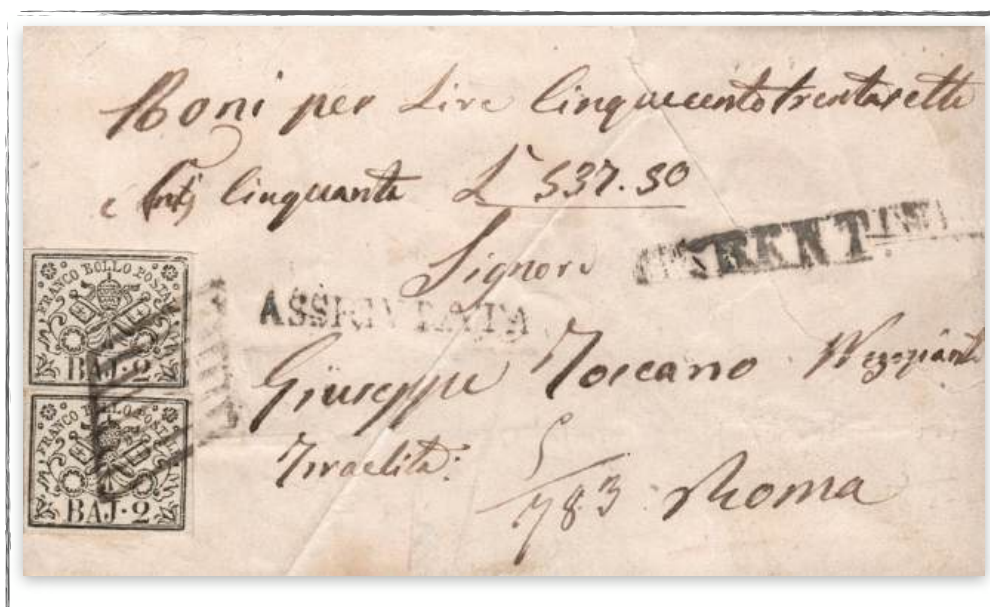 Boni per Lire Cinquecentotrentasette
e Cnt) Cinquanta L 537.50
Signore
FERENTINO
ASSICURATA
Giuseppe Toscano Negoziante
Israelita:
783 Roma
FRANCO BOLLO POSTALE
BAJ·2
FRANCO BOLLO POSTALE
BAJ·2